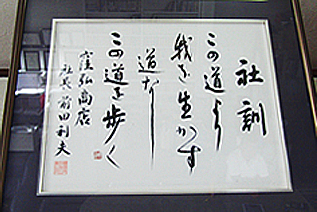 社訓
この道より
我を生かす
道なし
この道を歩く
窪弘商店
社長 前田利夫